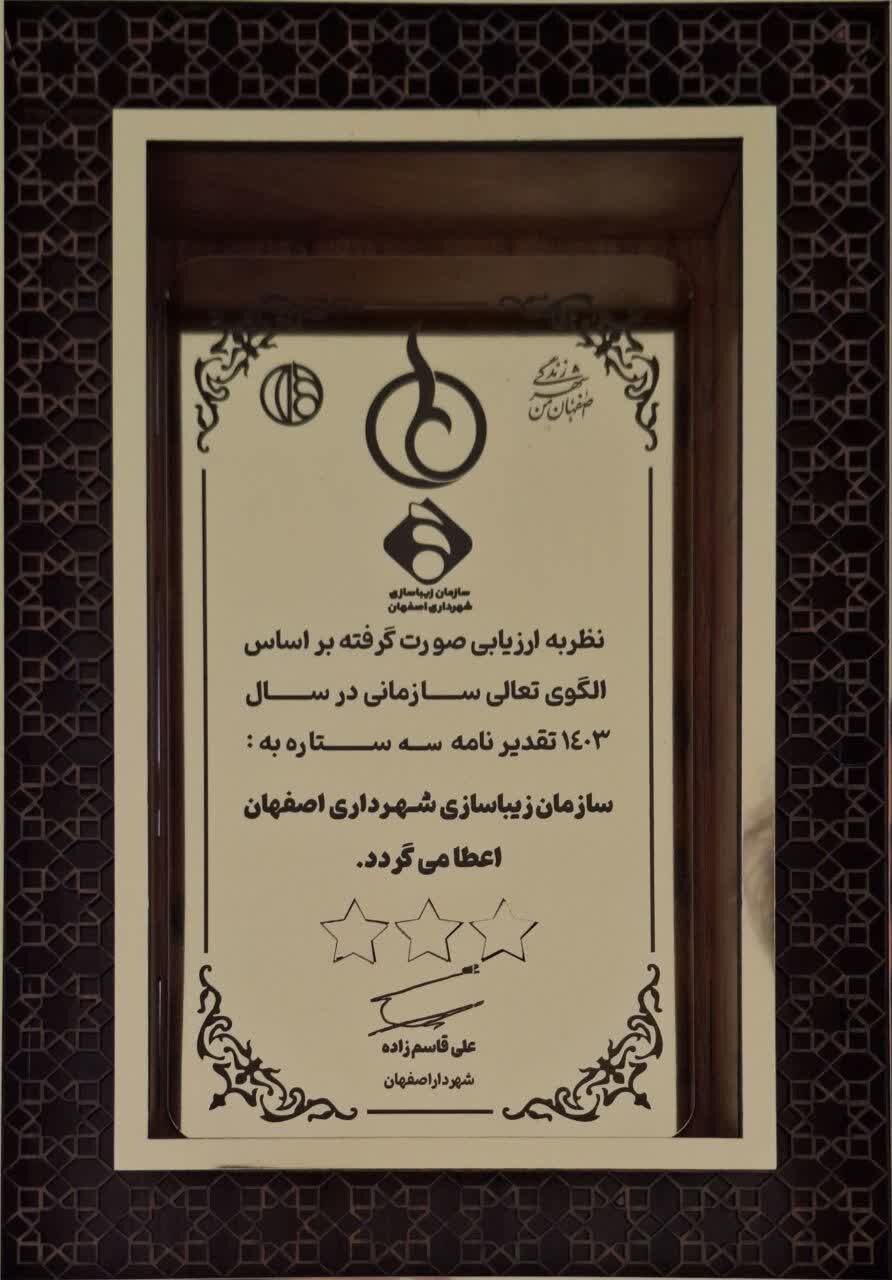 زندگی
شهر
اصفهان من
سازمان زیباسازی
شهرداری اصفهان
نظربه ارزیابی صورت گرفته بر اساس
الگوی تعالی سازمانی در سال
۱۴۰۳ تقدیر نامه سه ستاره به :
سازمان زیباسازی شهرداری اصفهان
اعطا می گردد.
علی قاسم زاده
شهردار اصفهان